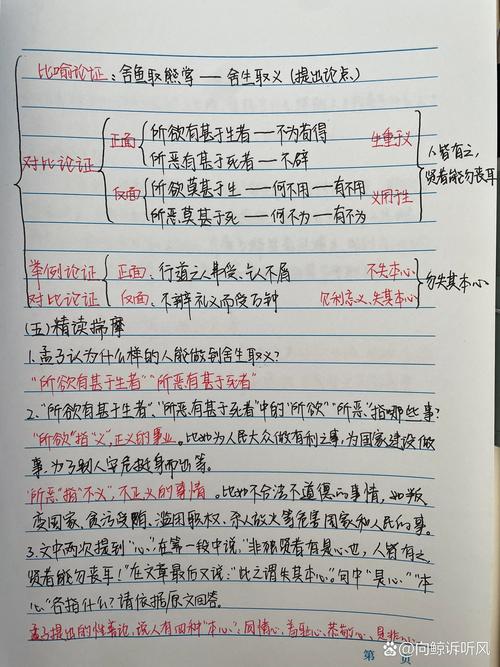 比喻论证：舍鱼取熊掌——舍生取义（提出论点）
对比论证
正面
所欲有甚于生者——不为苟得
所恶有甚于死者——不辟
生重于义
反面
所欲莫甚于生——何不用——有不用
所恶莫甚于死——何不为——有不为
人皆有之，
贤者能勿丧耳
举例论证
对比论证
正面：行道之人弗受、乞人不屑
不失本心
反面：不辨礼义而受万钟
见利忘义、失其本心
勿失其本心
（五）精读揣摩
1.孟子认为什么样的人能做到舍生取义？
"所欲有甚于生者""所恶有甚于死者"
2."所欲有甚于生者"、"所恶有甚于死者"中的"所欲""所恶"指哪些事？
"所欲"指"义"，正义的事业。比如为人民大众做有利之事，为国家建设做
事，为了别人安危挺身而出等。
"所恶"指"不义"，不正义的事情。比如不合法不道德的事情，如叛
变国家、贪污受贿、滥用职权、杀人放火等危害国家和人民的事。
3.文中两次提到"心"，在第一段中说，"非独贤者有是心也，人皆有之，
贤者能勿丧耳！"在文章最后又说："此之谓失其本心。"句中"是心""本
心"各指什么？请依据原文回答。
孟子提出的性善论，说人有四种"本心"：同情心、羞耻心、恭敬心、是非心
第 页
@向鲸诉听风